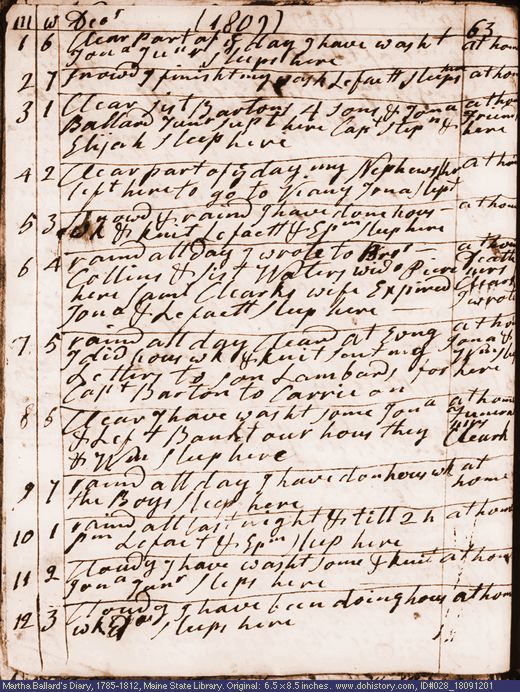 m w Decr (1809) 63
1 6 Clear part of ye day I have washt at home
Jona Junr sleeps here
2 7 snowd I finisht my wash Lafaett sleeps here at home
3 1 Clear sist Bartons 4 sons & Jona at home
Ballard Junr supt here Capt Stepn &
Elijah sleep here here
4 2 Clear part of ye day my Nephews Bn at home
left here to go to Jona slept
5 3 snowd & raind I have done hous at home
wk & knit Lafaett & Epm sleep here
6 4 raind all day I wrote to Brot at home
Collins & sist Waters wido Peirce Death
here Saml Clearks wife Expired Clearks
Jona & Lafaett sleep here I wrote
7 5 raind all day cleard at Evng at home
I did hous wk & knit sent my Jona &
Letters to son Lambards for sleep
Capt Barton to Carrie on here
8 6 Clear I have washt some Jona at home
& Laft Bankt our hous they Funeral
& Wm sleep here Cleark
9 7 raind all day I have don hous wk at
the Boys sleep here home
10 1 raind all last night & till 2 h at home
pm Lafaett & Epm sleep here
11 2 Cloudy I have washt some & knit at home
Jona Junr sleeps here
12 3 Cloudy I have been doing hous at home
wk sleeps here
Martha Ballard's Diary, 1785-1812, Maine State Library. Original: 6.5 x 8.5 inches. www.dohistory.com, ID#028_18091201